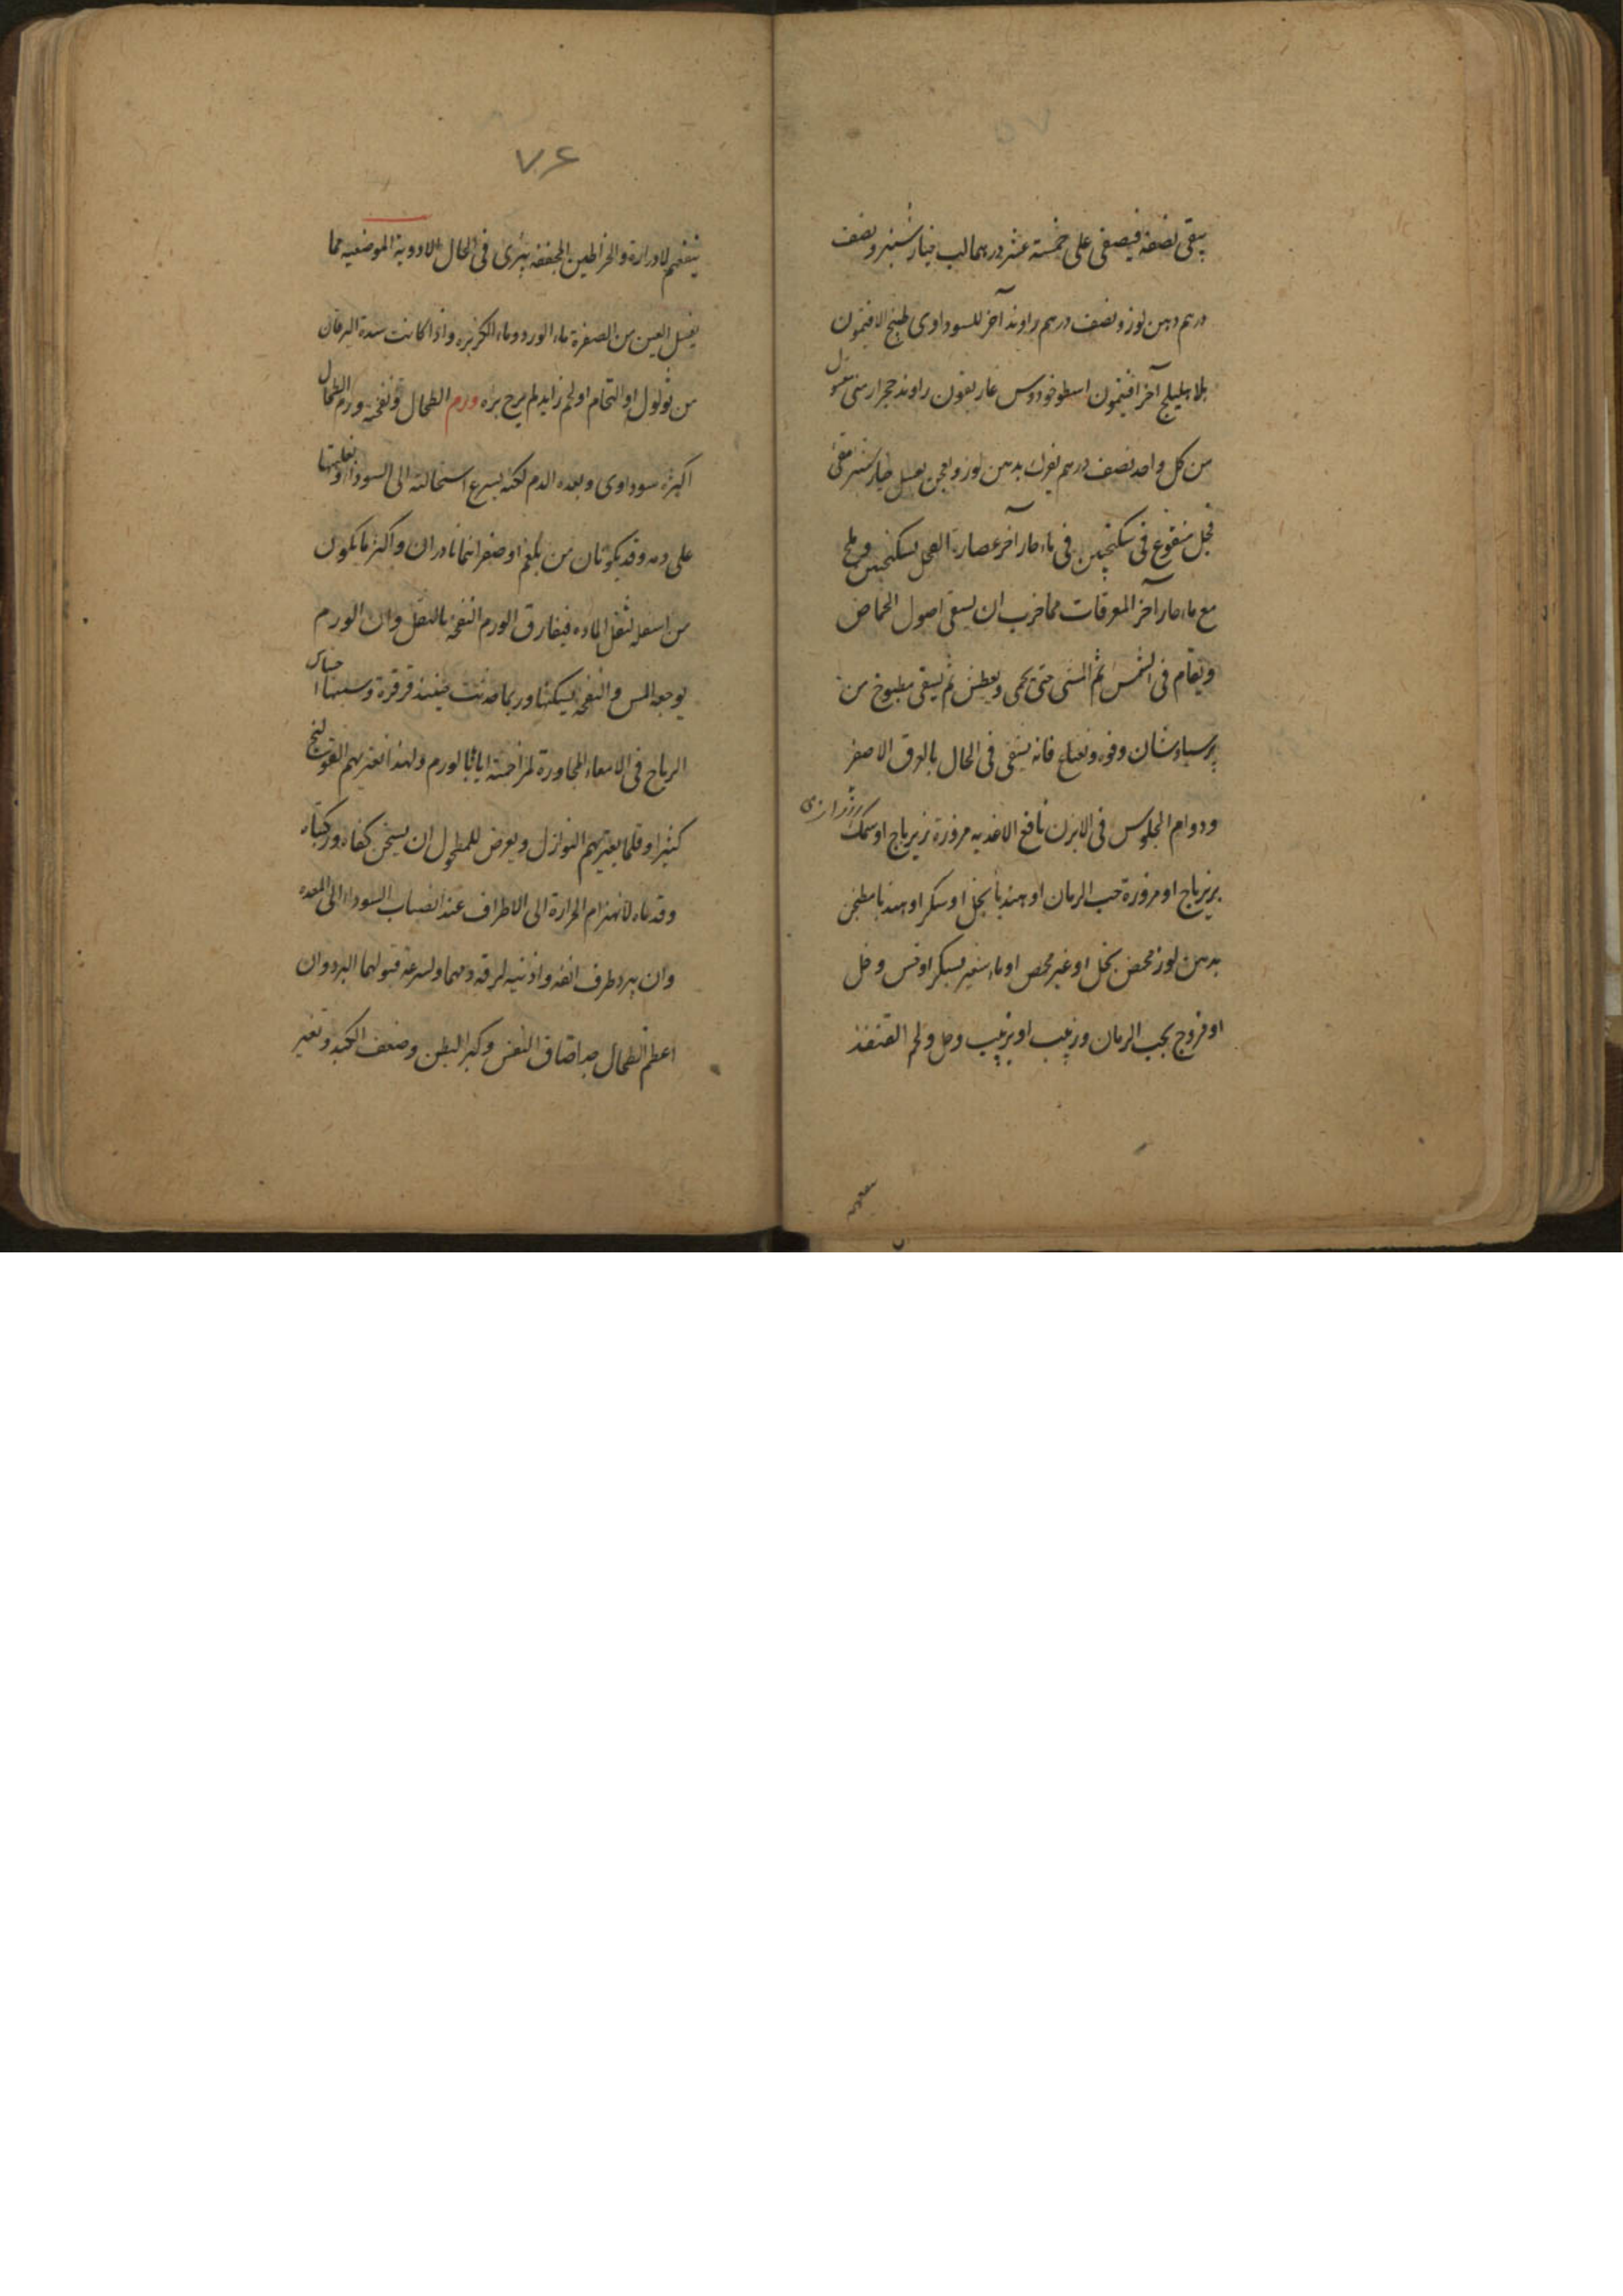 يبقى نصفه فيصفى على خمسة عشر درهما لب خيار شنبر ونصف
درهم دهن لوز ونصف درهم راوند آخر للسوداوى طبيخ الافتيمون
بلا هليلج آخر افتيمون اسطوخودوس غاريقون راوند حجر ارمنى مغسول
من كل واحد نصف درهم يفرك بدهن لوز ويعجن بعسل خيار شنبر مقئ
فجل منقوع فى سكنجبين فى ماء حار آخر عصارة الفجل بسكنجبين وملح
مع ماء حار آخر المعرقات مما جرب ان يسقى اصول الحماض
ويقام فى الشمس ثم المشى حتى يحمى ويعطش ثم يسقى مطبوخ من
برسياوشان وفوه ونعناع فانه يشفى فى الحال بالعرق الاصفر
ودوام الجلوس فى الابزن نافع الاغذيه مزورة زيرباج او سمك
بزيرباج او مزورة حب الرمان او هندبا بخل او سكر او هندبا مطجن
بدهن لوز محمض بخل او غير محمض او ماء شعير بسكر او خس وخل
او فروج بحب الرمان وزبيب او بزبيب وخل ولحم القنفذ
٧٦
ينفعهم لادراره والخراطين المجففه يبرئ فى الحال الادوية الموضعيه مما
يغسل العين من الصفرة ماء الورد وماء الكزبره واذا كانت سدة اليرقان
من ثولول او التحام او لحم زايد لم يرج برؤه ورم الطحال ونفخته ورم الطحال
اكثره سوداوى وبعده الدم لكنه يسرع استحالته الى السوداء وتغليبها
على دمه وقد يكونان من بلغم او صفرا انما نادران واكثر ما يكون
من اسفله لثقل الماده فيفارق الورم النفخه بالثقل وان الورم
يوجعه المس والنفخه يسكنها وربما حدثت حينئذ قرقرة وسببها احتباس
الرياح فى الامعاء المجاورة لمزاحمته اياها بالورم ولهذا تعتريهم القولنج
كثيرا وقلما يعتريهم النوازل ويعرض للمطحول ان يسخن كفاه وركبتاه
وقدماه لانهزام الحرارة الى الاطراف عند انصباب السوداء الى المعده
وان يبرد طرف انفه واذنيه لرقة دمهما ولسرعة قبولهما البرد وان
اعظم الطحال جدا ضاق النفس وكبر البطن وضعف الكبد وتغير